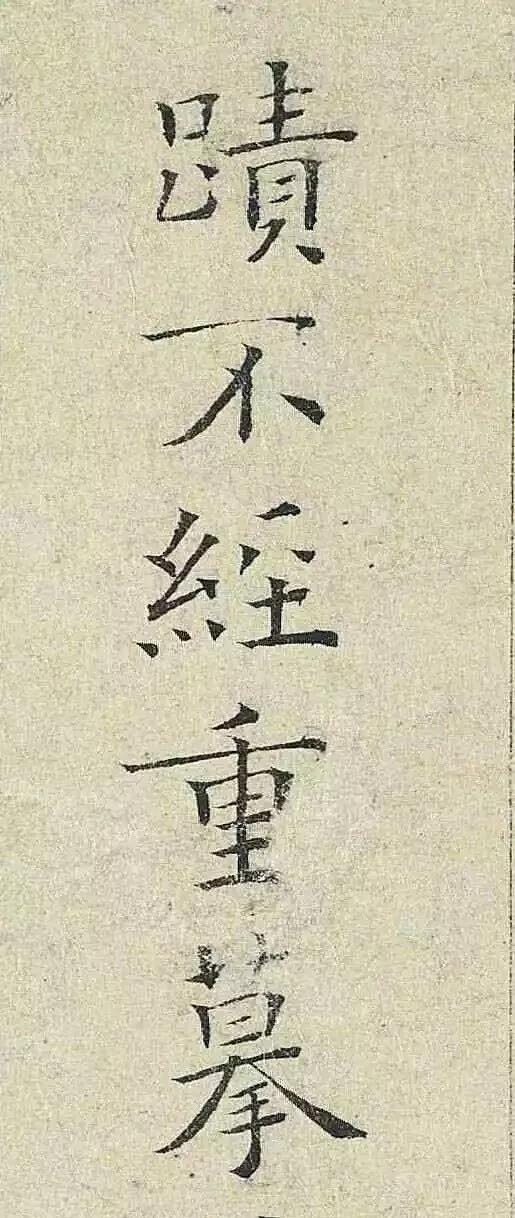 蹟不經重摹